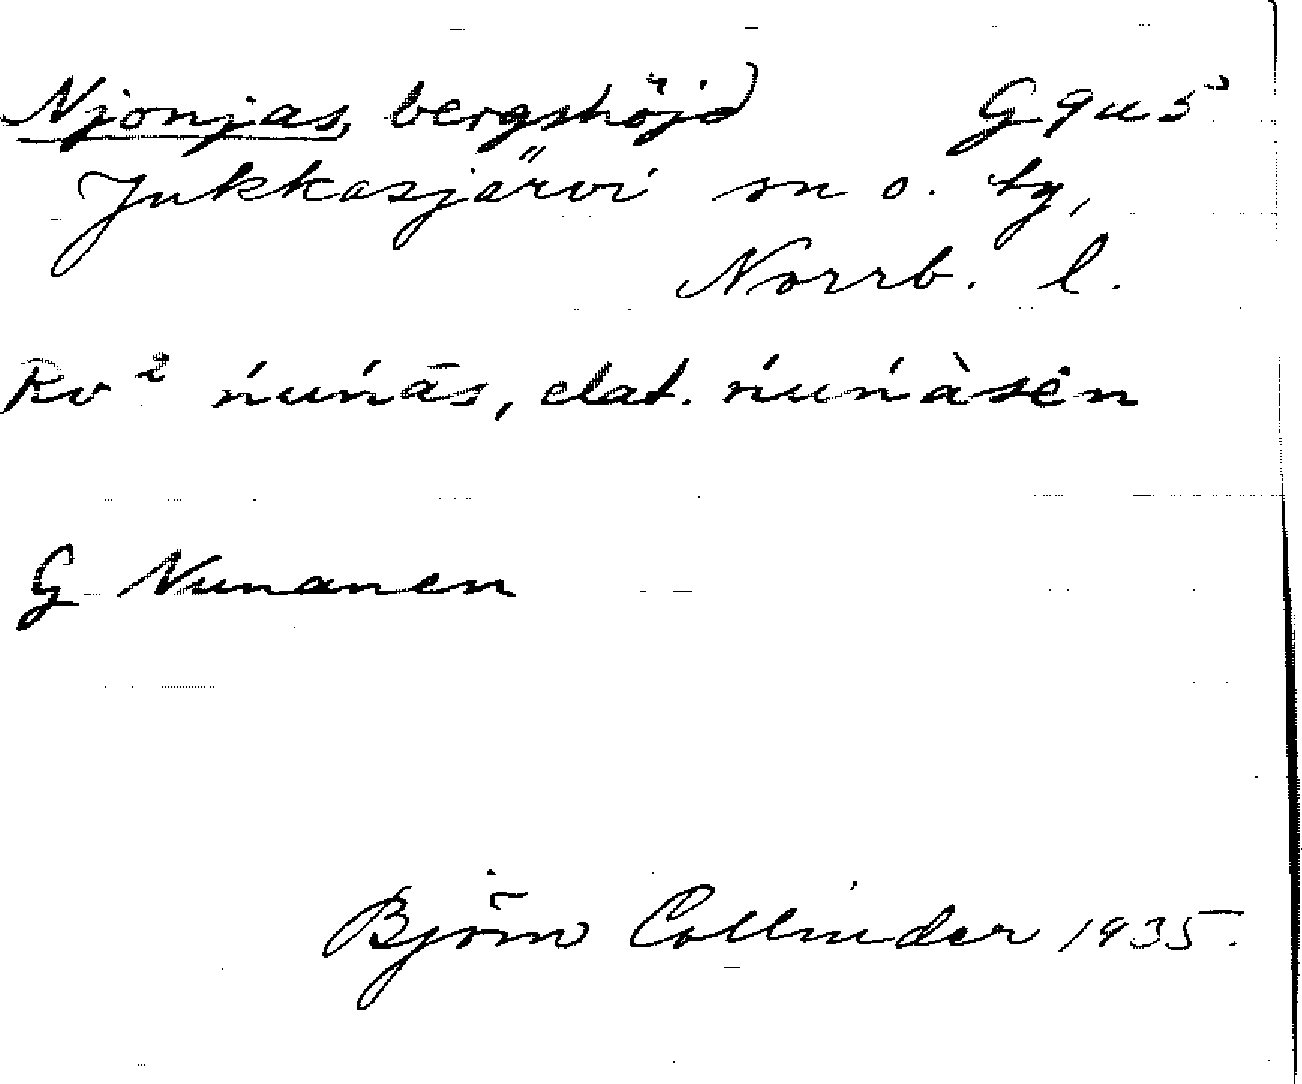 Njonjas, bergshöjd G 9 u 5
Jukkasjärvi sn o. tg,
Norrb. l.
Rv² ńuńās, elat. ńuńàsēn
G Nunanen
Björn Collinder 1935.